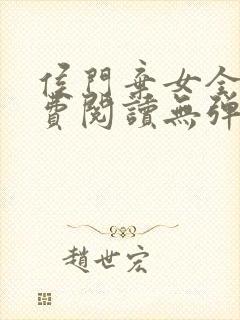 侯門棄女全
費閱讀無彈
趙世宏